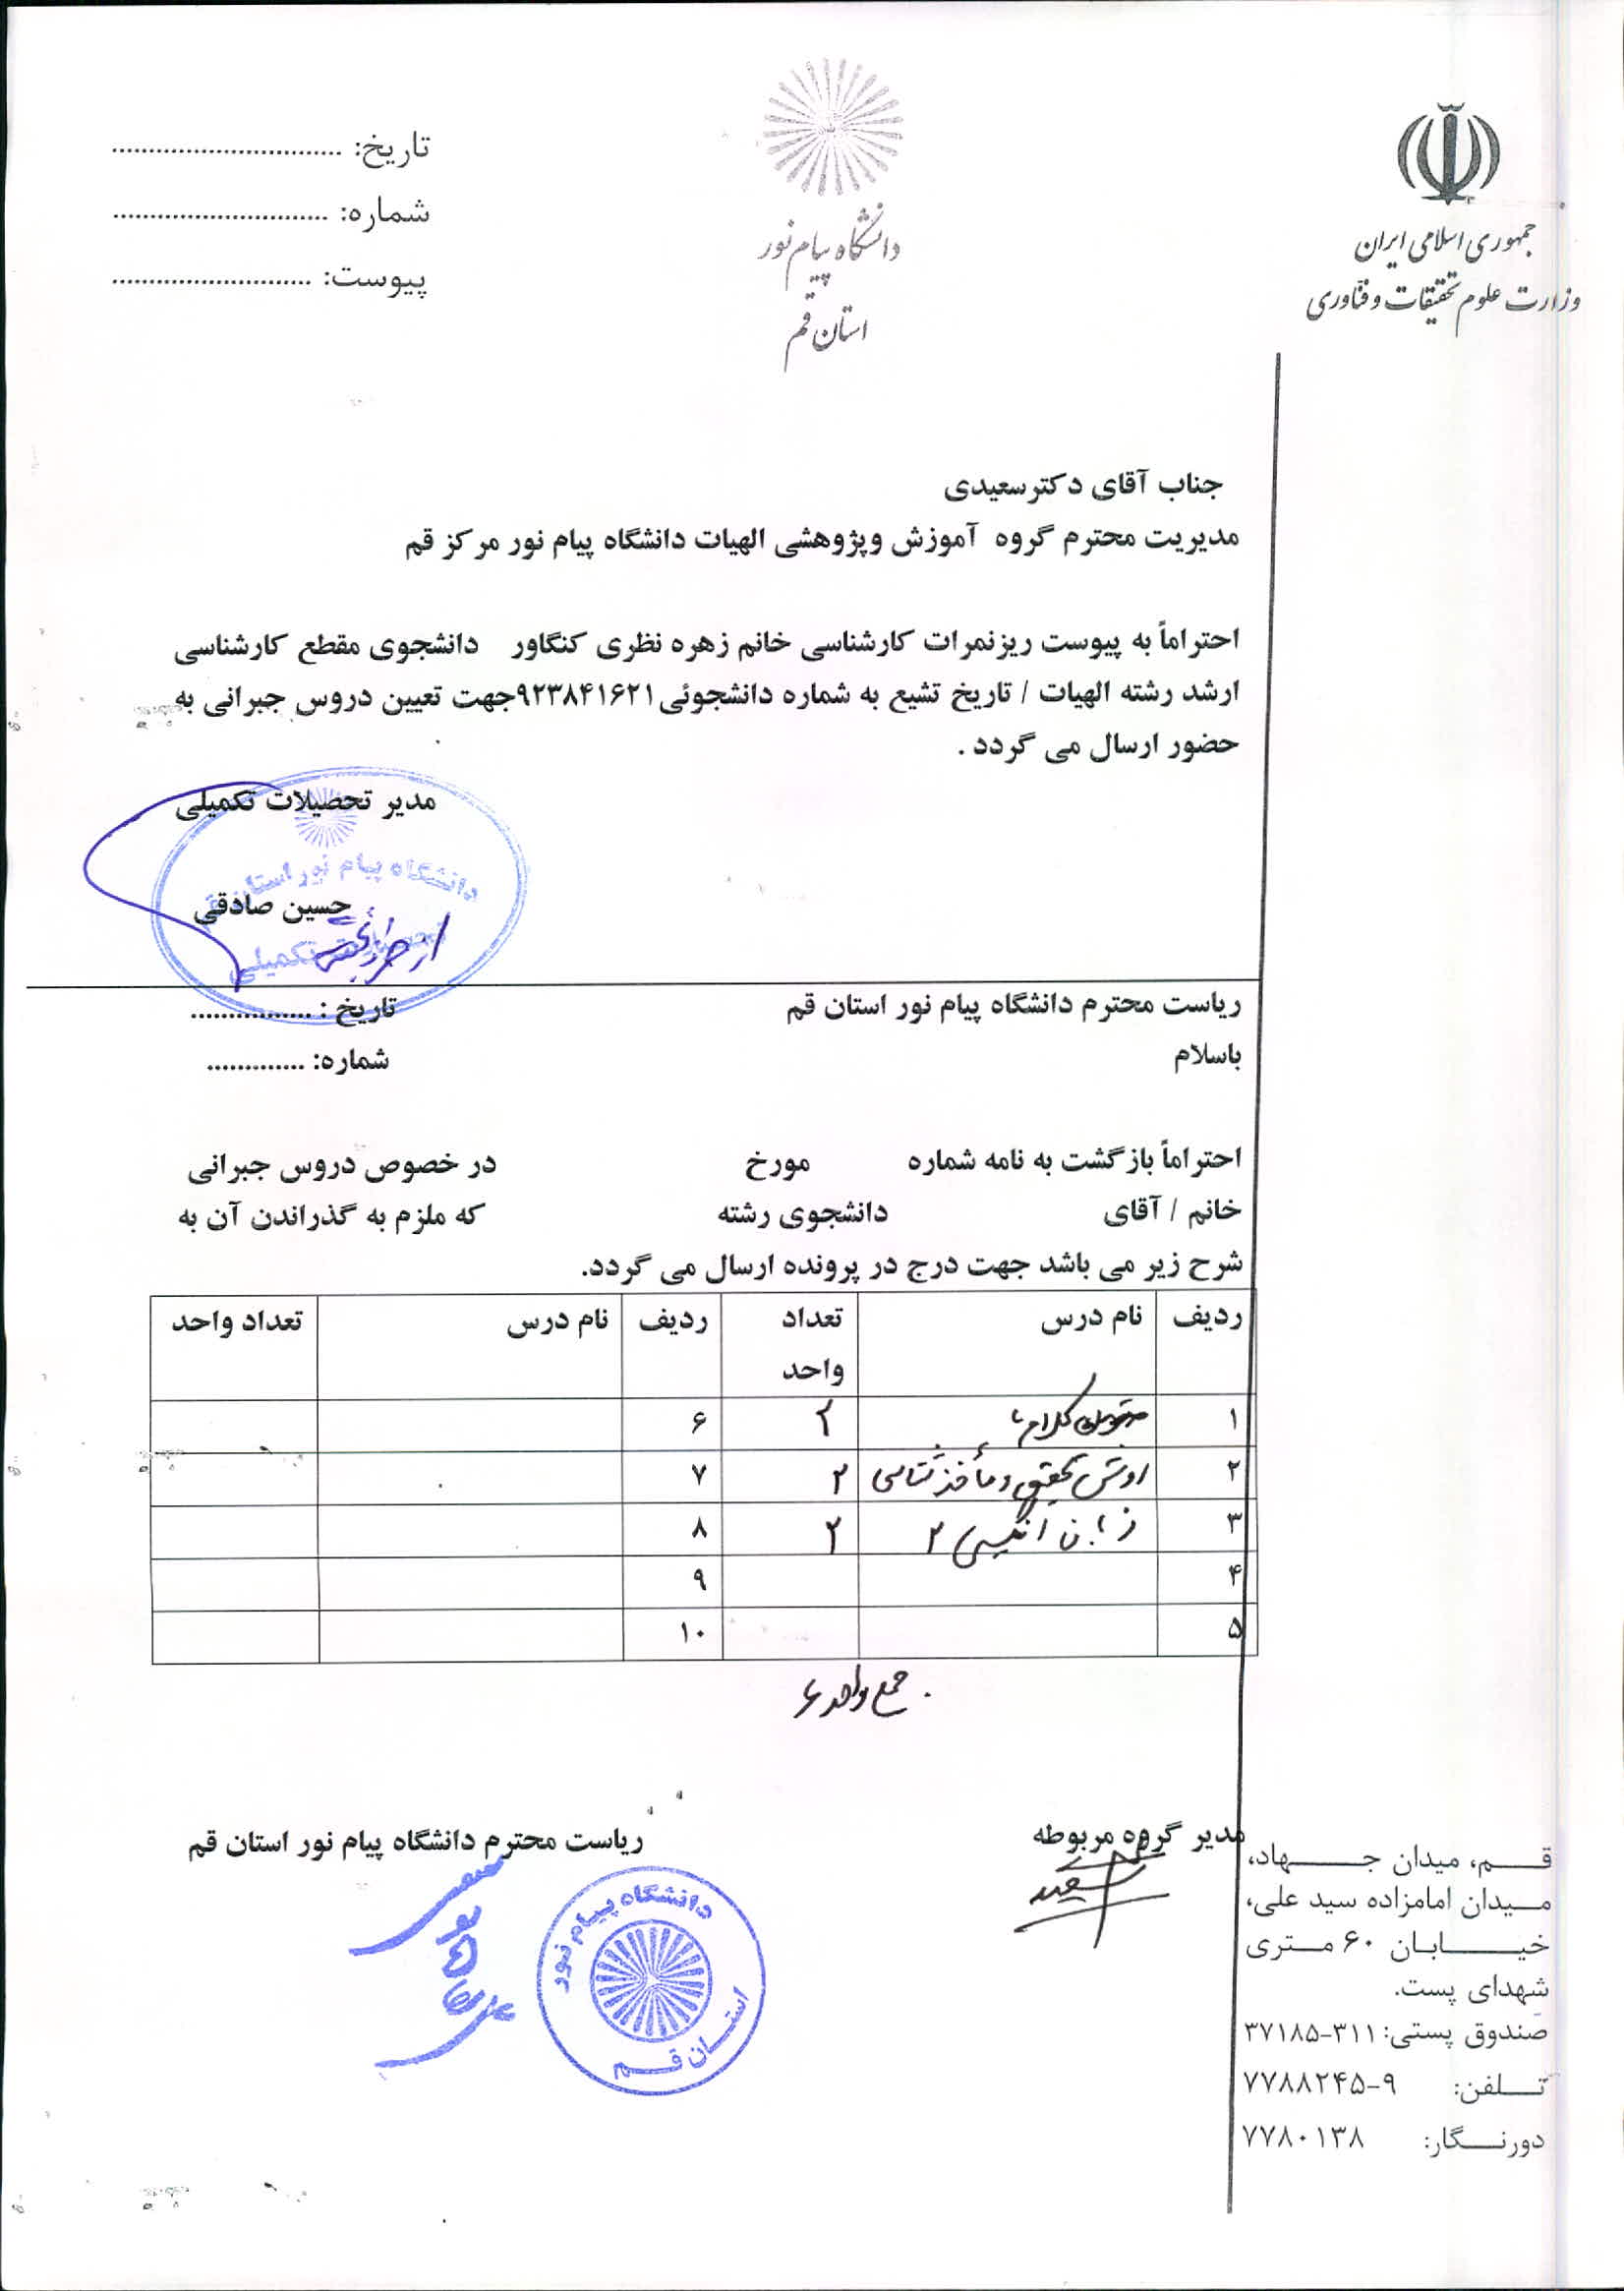 جمهوری اسلامی ایران
وزارت علوم تحقیقات و فنّاوری
دانشگاه پیام نور
استان قم
تاریخ: ................................
شماره: ..............................
پیوست: ............................
جناب آقای دکترسعیدی
مدیریت محترم گروه آموزش وپژوهشی الهیات دانشگاه پیام نور مرکز قم
احتراماً به پیوست ریزنمرات کارشناسی خانم زهره نظری کنگاور دانشجوی مقطع کارشناسی
ارشد رشته الهیات / تاریخ تشیع به شماره دانشجوئی۹۲۳۸۴۱۶۲۱جهت تعیین دروس جبرانی به
حضور ارسال می گردد .
مدیر تحصیلات تکمیلی
دانشگاه پیام نور استان قم
حسین صادقی
تحصیلات تکمیلی
ریاست محترم دانشگاه پیام نور استان قم
تاریخ : ................
باسلام
شماره: .............
احتراماً بازگشت به نامه شماره مورخ در خصوص دروس جبرانی
خانم / آقای دانشجوی رشته که ملزم به گذراندن آن به
شرح زیر می باشد جهت درج در پرونده ارسال می گردد.
ردیف نام درس تعداد واحد ردیف نام درس تعداد واحد
۱ کلام ۲ ۶
۲ روش تحقیق و مأخذ شناسی ۲ ۷
۳ زبان انگلیسی ۲ ۲ ۸
۴ ۹
۵ ۱۰
جمع واحد ۶
مدیر گروه مربوطه
ریاست محترم دانشگاه پیام نور استان قم
دانشگاه پیام نور
استان قم
قم، میدان جهاد،
میدان امامزاده سید علی،
خیابان ۶۰ متری
شهدای پست.
صندوق پستی: ۳۷۱۸۵-۳۱۱
تلفن: ۷۷۸۸۲۴۵-۹
دورنگار: ۷۷۸۰۱۳۸